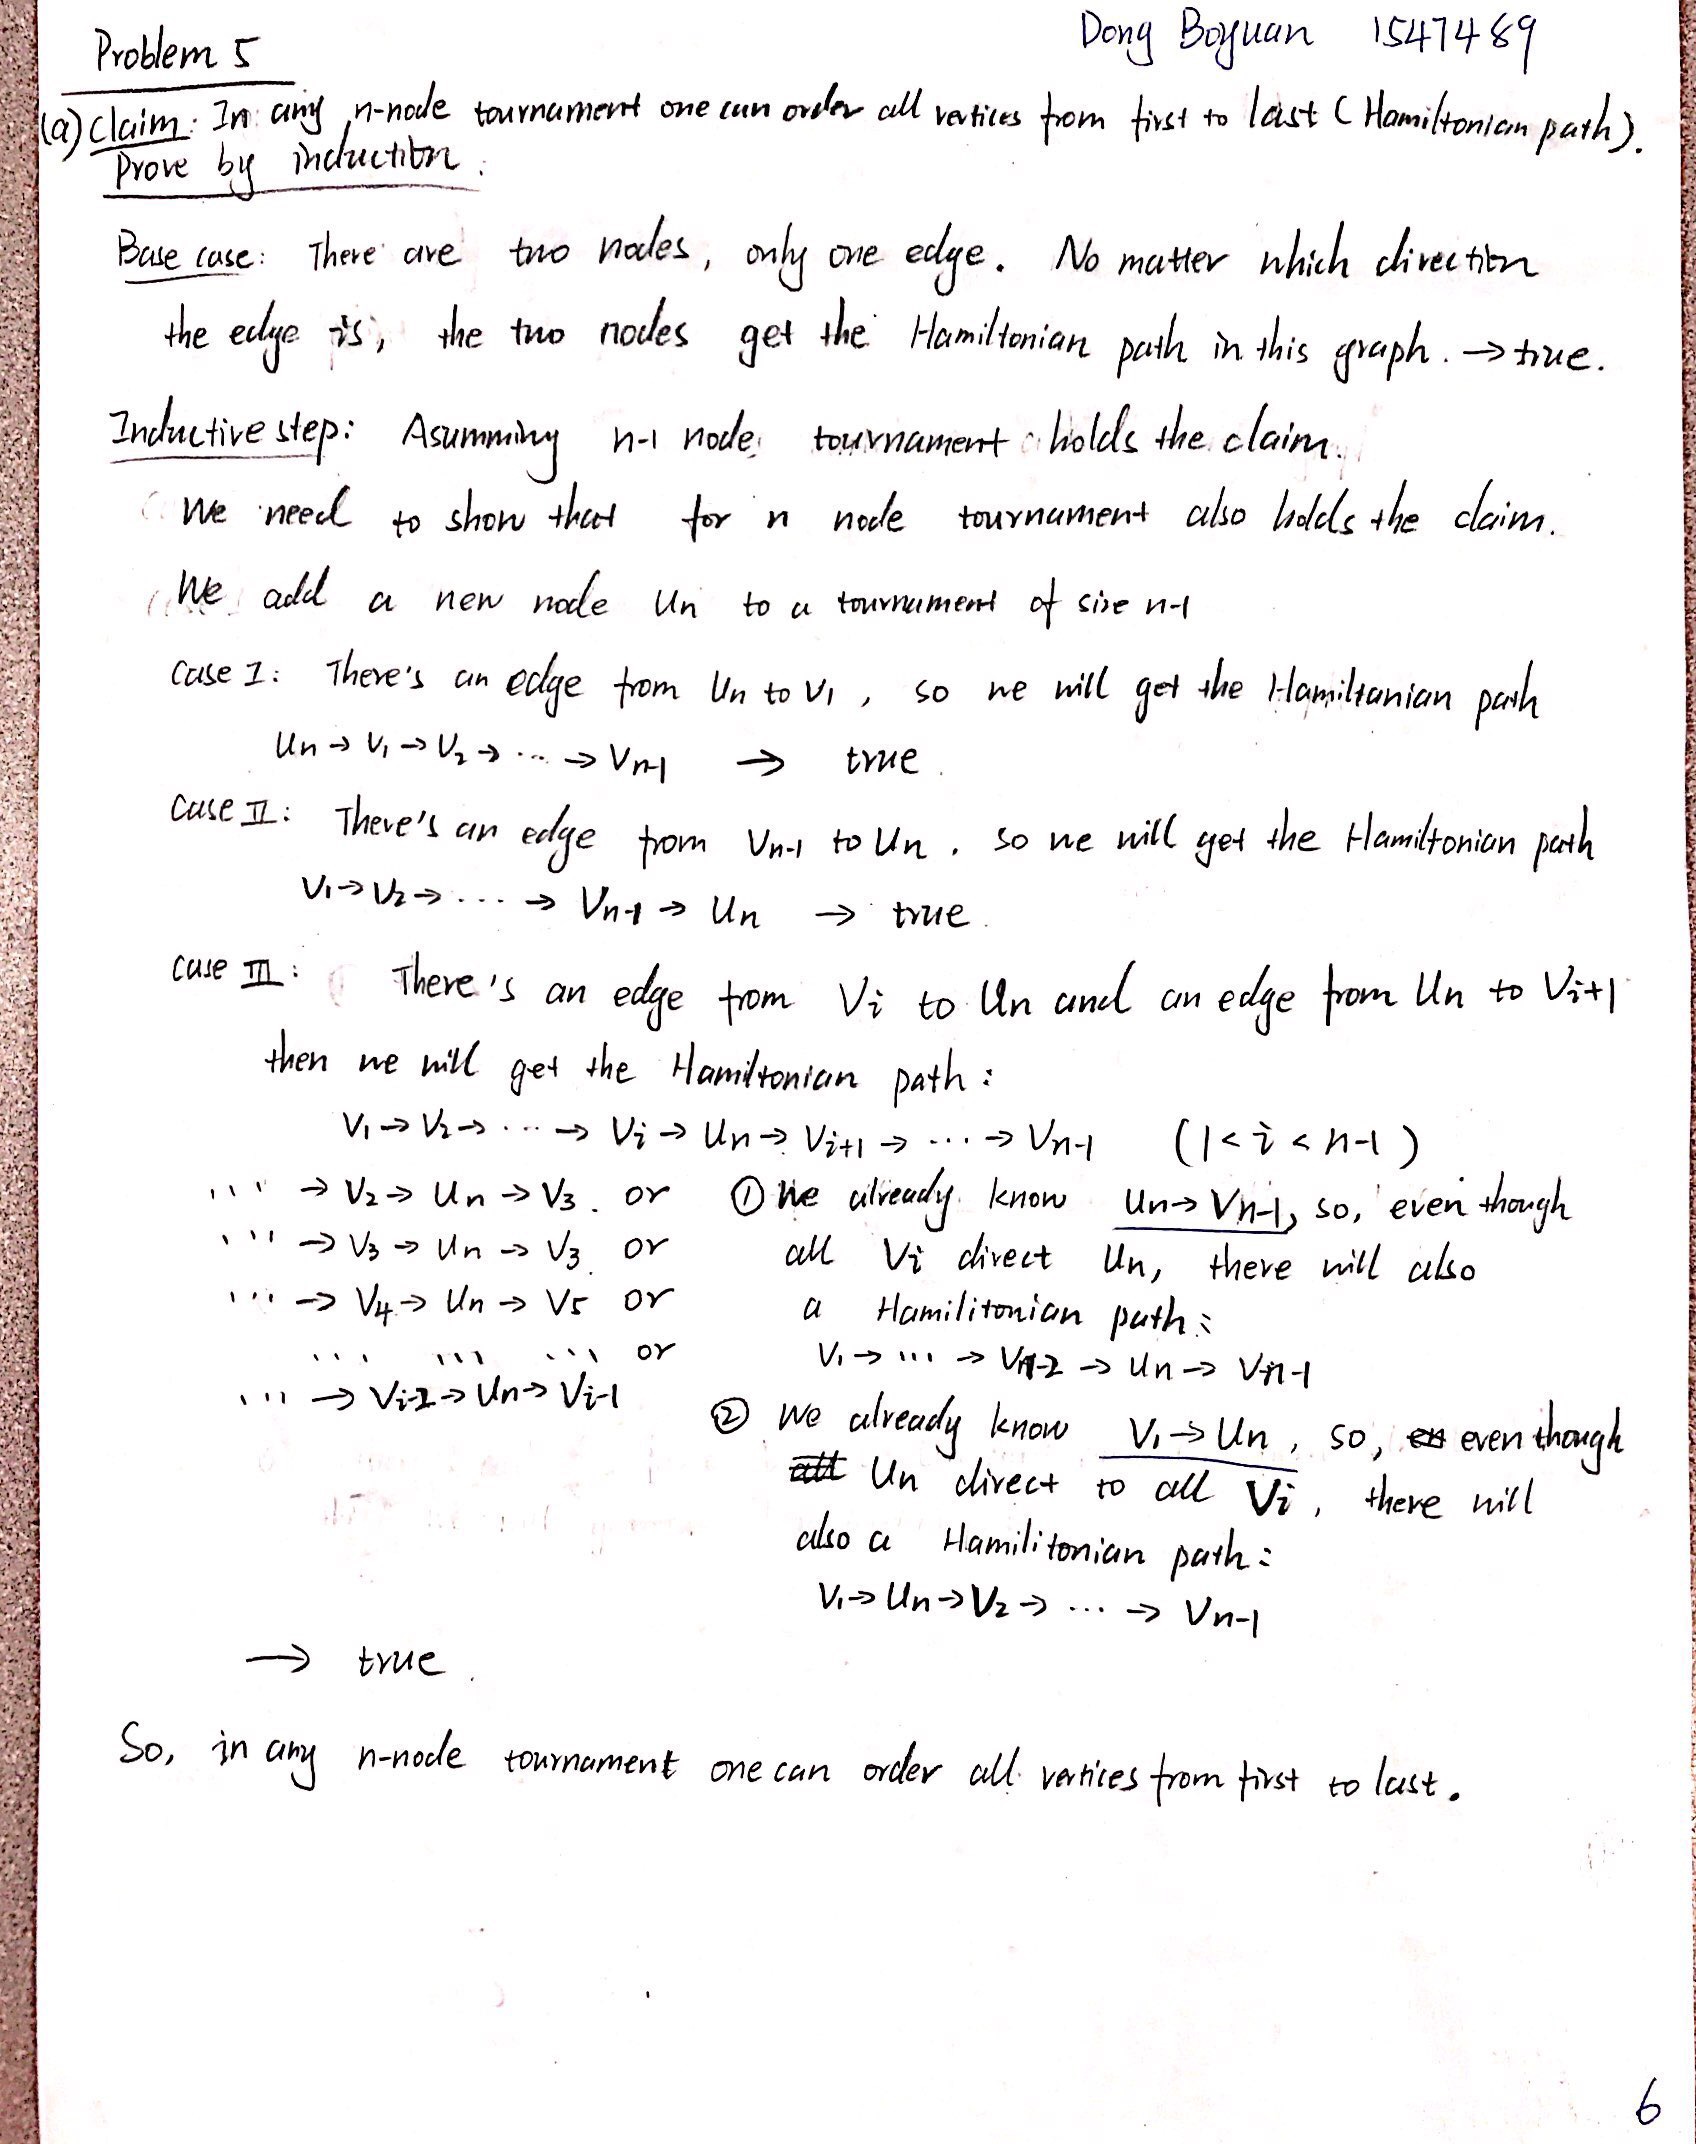 Problem 5
Dong Boyuan 1547489
(a) Claim: In any n-node tournament one can order all vertices from first to last (Hamiltonian path).
Prove by induction:
Base case: There are two nodes, only one edge. No matter which direction
the edge is, the two nodes get the Hamiltonian path in this graph. → true.
Inductive step: Asumming n-1 node tournament holds the claim.
We need to show that for n node tournament also holds the claim.
We add a new node Un to a tournament of size n-1
Case I: There's an edge from Un to V1, so we will get the Hamiltanian path
Un → V1 → V2 → ... → Vn-1 → true.
Case II: There's an edge from Vn-1 to Un. so we will get the Hamiltonian path
V1 → V2 → .... → Vn-1 → Un → true.
Case III: There's an edge from Vi to Un and an edge from Un to Vi+1
then we will get the Hamiltonian path:
V1 → V2 → ... → Vi → Un → Vi+1 → ... → Vn-1 (1 < i < n-1)
... → V2 → Un → V3. or
... → V3 → Un → V3. or
... → V4 → Un → V5 or
... ... ... or
... → Vi-2 → Un → Vi-1
① We already know Un → Vn-1, so, even though
all Vi direct Un, there will also
a Hamilitonian path:
V1 → ... → Vn-2 → Un → Vn-1
② We already know V1 → Un, so, even though
Un direct to all Vi, there will
also a Hamilitonian path:
V1 → Un → V2 → ... → Vn-1
→ true.
So, in any n-node tournament one can order all vertices from first to last.
6